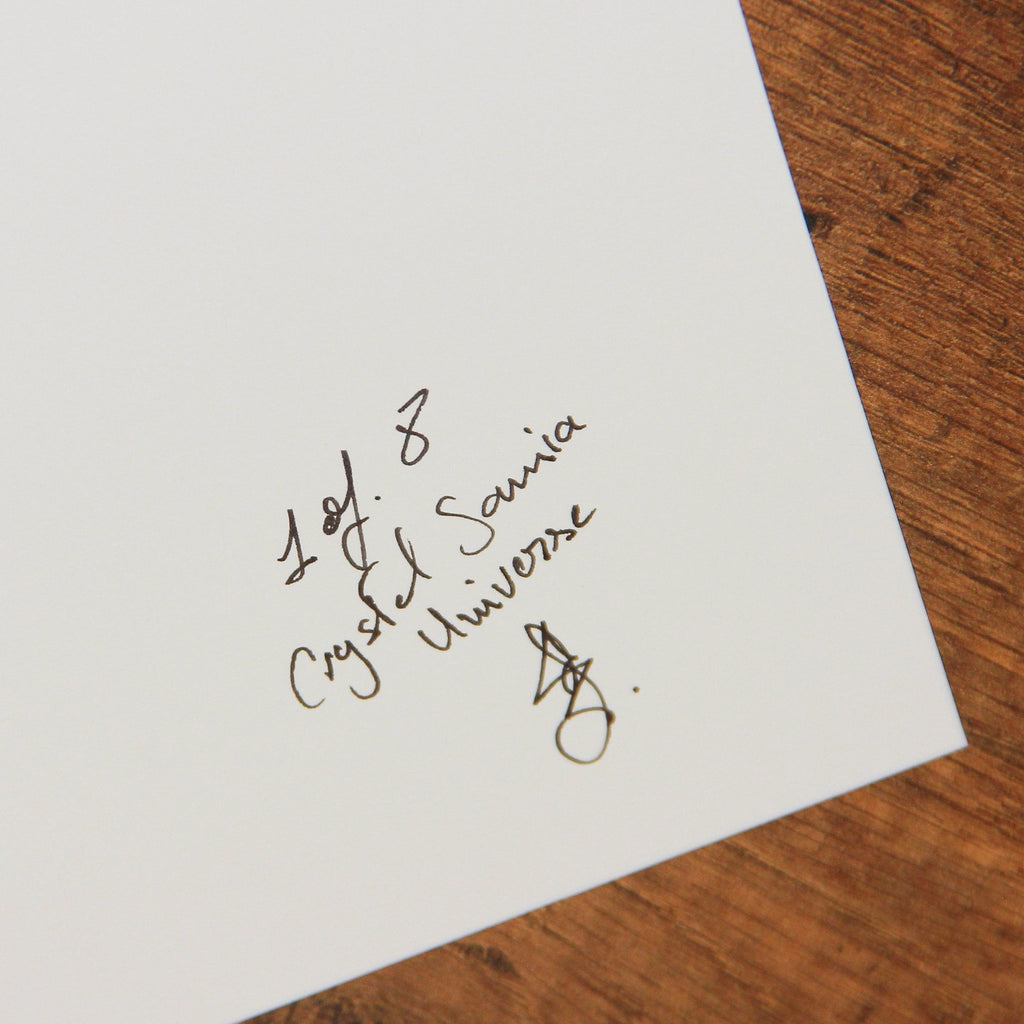 1 of. 8
Crystal Samia
Universe